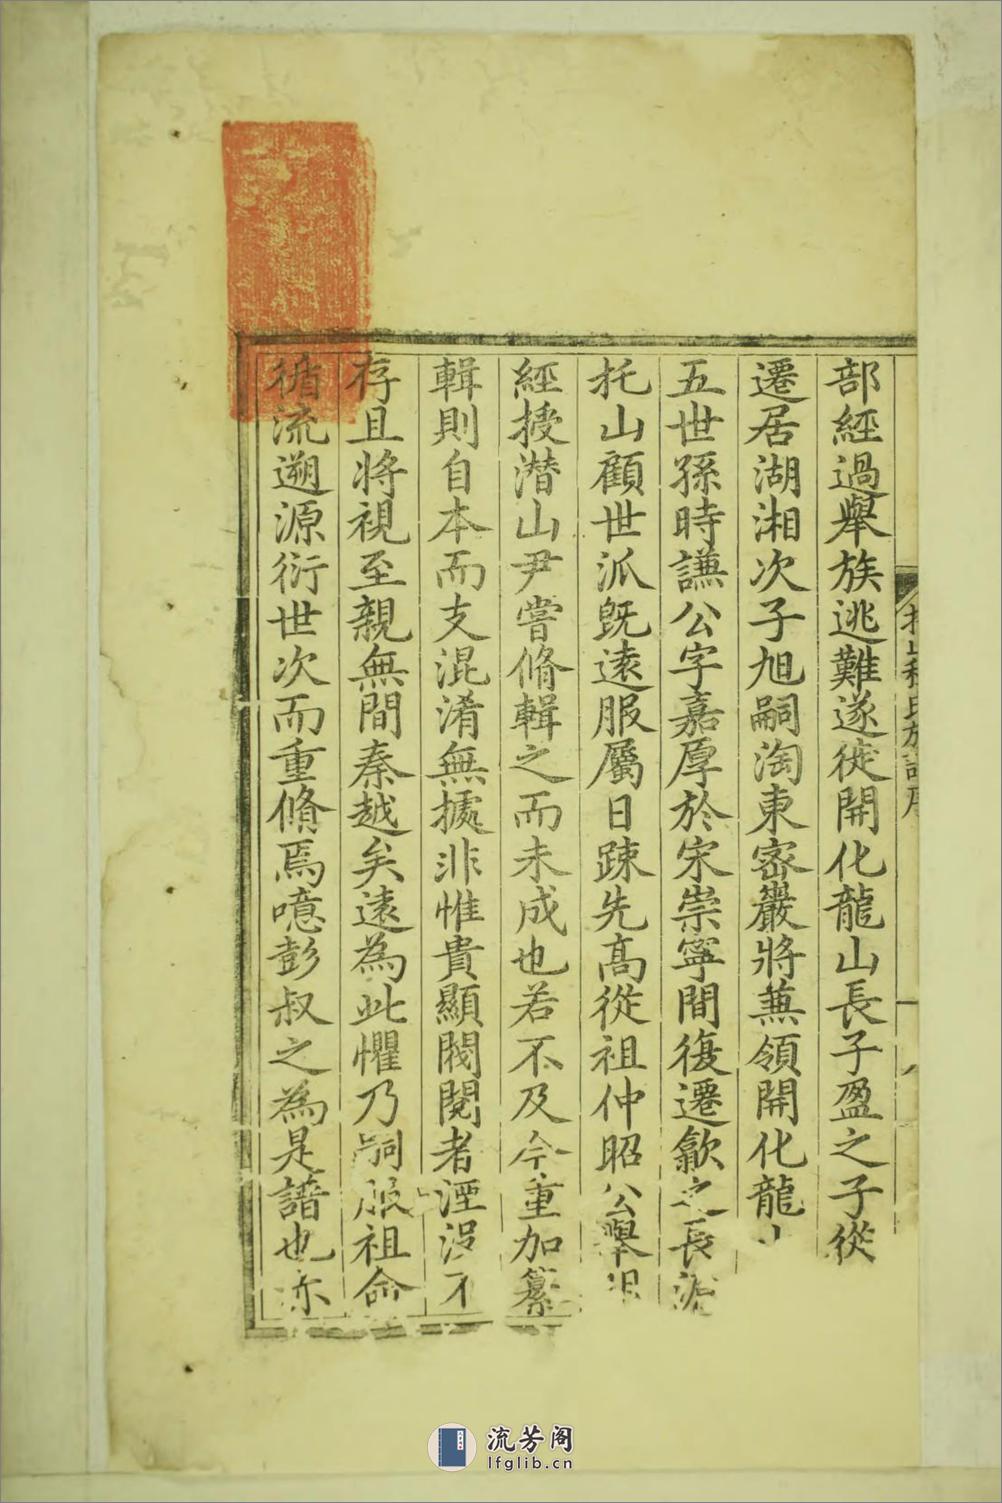 部經過舉族逃難遂徙開化龍山長子盈之子從
遷居湖湘次子旭嗣淘東密巖將蕪領開化龍
五世孫時謙公字嘉厚於宋崇寧間復遷歙之長
托山顧世派旣遠服屬日踈先高從祖仲昭公舉
經授潛山尹嘗脩輯之而未成也若不及今重加纂
輯則自本而支混淆無據非惟貴顯閥閱者湮沒不
存且將視至親無間秦越矣遠為此懼乃嗣服祖命
循流遡源衍世次而重脩焉噫彭叔之為是譜也亦
流芳阁
lfglib.cn